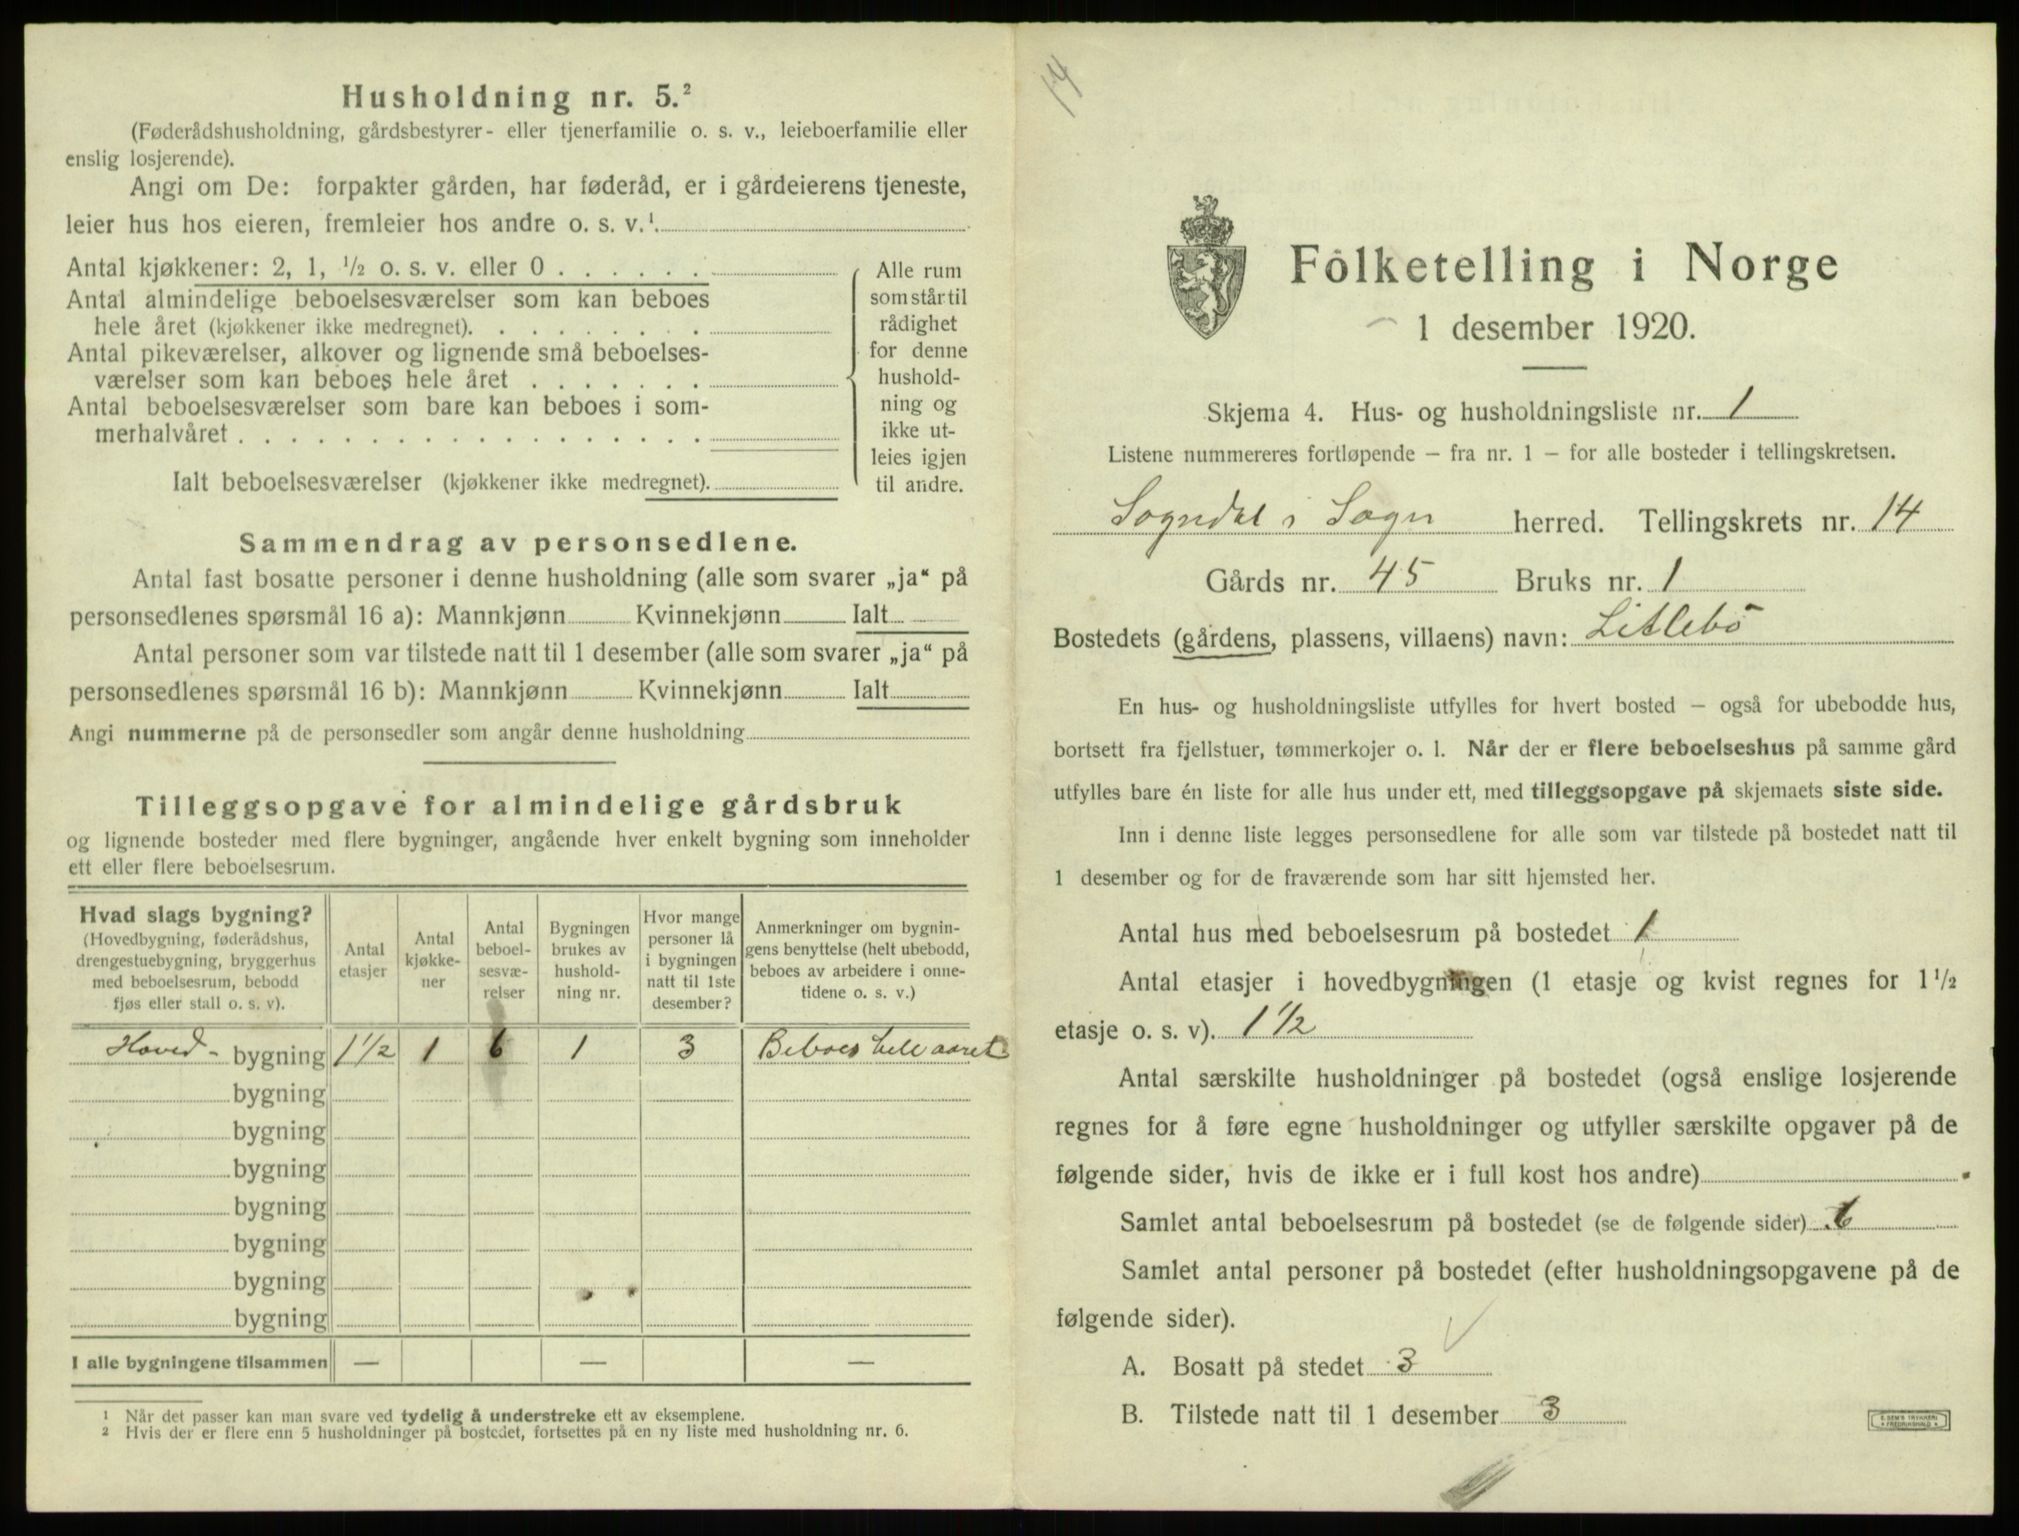 Husholdning nr. 5.²
(Føderådshusholdning, gårdsbestyrer- eller tjenerfamilie o. s. v., leieboerfamilie eller
enslig losjerende).
Angi om De: forpakter gården, har føderåd, er i gårdeierens tjeneste,
leier hus hos eieren, fremleier hos andre o. s. v.¹
Antal kjøkkener: 2, 1, ½ o. s. v. eller 0 . . . . . .
Antal almindelige beboelsesværelser som kan beboes
hele året (kjøkkener ikke medregnet). . . . . . . . .
Antal pikeværelser, alkover og lignende små beboelses-
værelser som kan beboes hele året . . . . . . .
Antal beboelsesværelser som bare kan beboes i som-
merhalvåret . . . . . . . . . . . . . . . . . .
Ialt beboelsesværelser (kjøkkener ikke medregnet).
Alle rum
som står til
rådighet
for denne
hushold-
ning og
ikke ut-
leies igjen
til andre.
Sammendrag av personsedlene.
Antal fast bosatte personer i denne husholdning (alle som svarer „ja“ på
personsedlenes spørsmål 16 a): Mannkjønn Kvinnekjønn Ialt
Antal personer som var tilstede natt til 1 desember (alle som svarer „ja“ på
personsedlenes spørsmål 16 b): Mannkjønn Kvinnekjønn Ialt
Angi nummerne på de personsedler som angår denne husholdning
Tilleggsopgave for almindelige gårdsbruk
og lignende bosteder med flere bygninger, angående hver enkelt bygning som inneholder
ett eller flere beboelsesrum.
Hvad slags bygning?
(Hovedbygning, føderådshus,
drengestuebygning, bryggerhus
med beboelsesrum, bebodd
fjøs eller stall o. s. v).
Antal
etasjer
Antal
kjøkke-
ner
Antal
beboel-
sesvæ-
relser
Bygningen
brukes av
hushold-
ning nr.
Hvor mange
personer lå
i bygningen
natt til 1ste
desember?
Anmerkninger om bygnin-
gens benyttelse (helt ubebodd,
beboes av arbeidere i onne-
tidene o. s. v.)
Hoved- bygning 1½ 1 6 1 3 Beboes hele aaret
bygning
bygning
bygning
bygning
bygning
bygning
bygning
I alle bygningene tilsammen — — —
¹ Når det passer kan man svare ved tydelig å understreke ett av eksemplene.
² Hvis der er flere enn 5 husholdninger på bostedet, fortsettes på en ny liste med husholdning nr. 6.
14
Folketelling i Norge
1 desember 1920.
Skjema 4. Hus- og husholdningsliste nr. 1
Listene nummereres fortløpende – fra nr. 1 – for alle bosteder i tellingskretsen.
Sogndal i Sogn herred. Tellingskrets nr. 14
Gårds nr. 45 Bruks nr. 1
Bostedets (gårdens, plassens, villaens) navn: Litlebö
En hus- og husholdningsliste utfylles for hvert bosted – også for ubebodde hus,
bortsett fra fjellstuer, tømmerkojer o. l. Når der er flere beboelseshus på samme gård
utfylles bare én liste for alle hus under ett, med tilleggsopgave på skjemaets siste side.
Inn i denne liste legges personsedlene for alle som var tilstede på bostedet natt til
1 desember og for de fraværende som har sitt hjemsted her.
Antal hus med beboelsesrum på bostedet 1
Antal etasjer i hovedbygningen (1 etasje og kvist regnes for 1½
etasje o. s. v). 1½
Antal særskilte husholdninger på bostedet (også enslige losjerende
regnes for å føre egne husholdninger og utfyller særskilte opgaver på de
følgende sider, hvis de ikke er i full kost hos andre)
Samlet antal beboelsesrum på bostedet (se de følgende sider) 6
Samlet antal personer på bostedet (efter husholdningsopgavene på de
følgende sider).
A. Bosatt på stedet 3
B. Tilstede natt til 1 desember 3
E. SEM'S TRYKKERI
FREDRIKSHALD